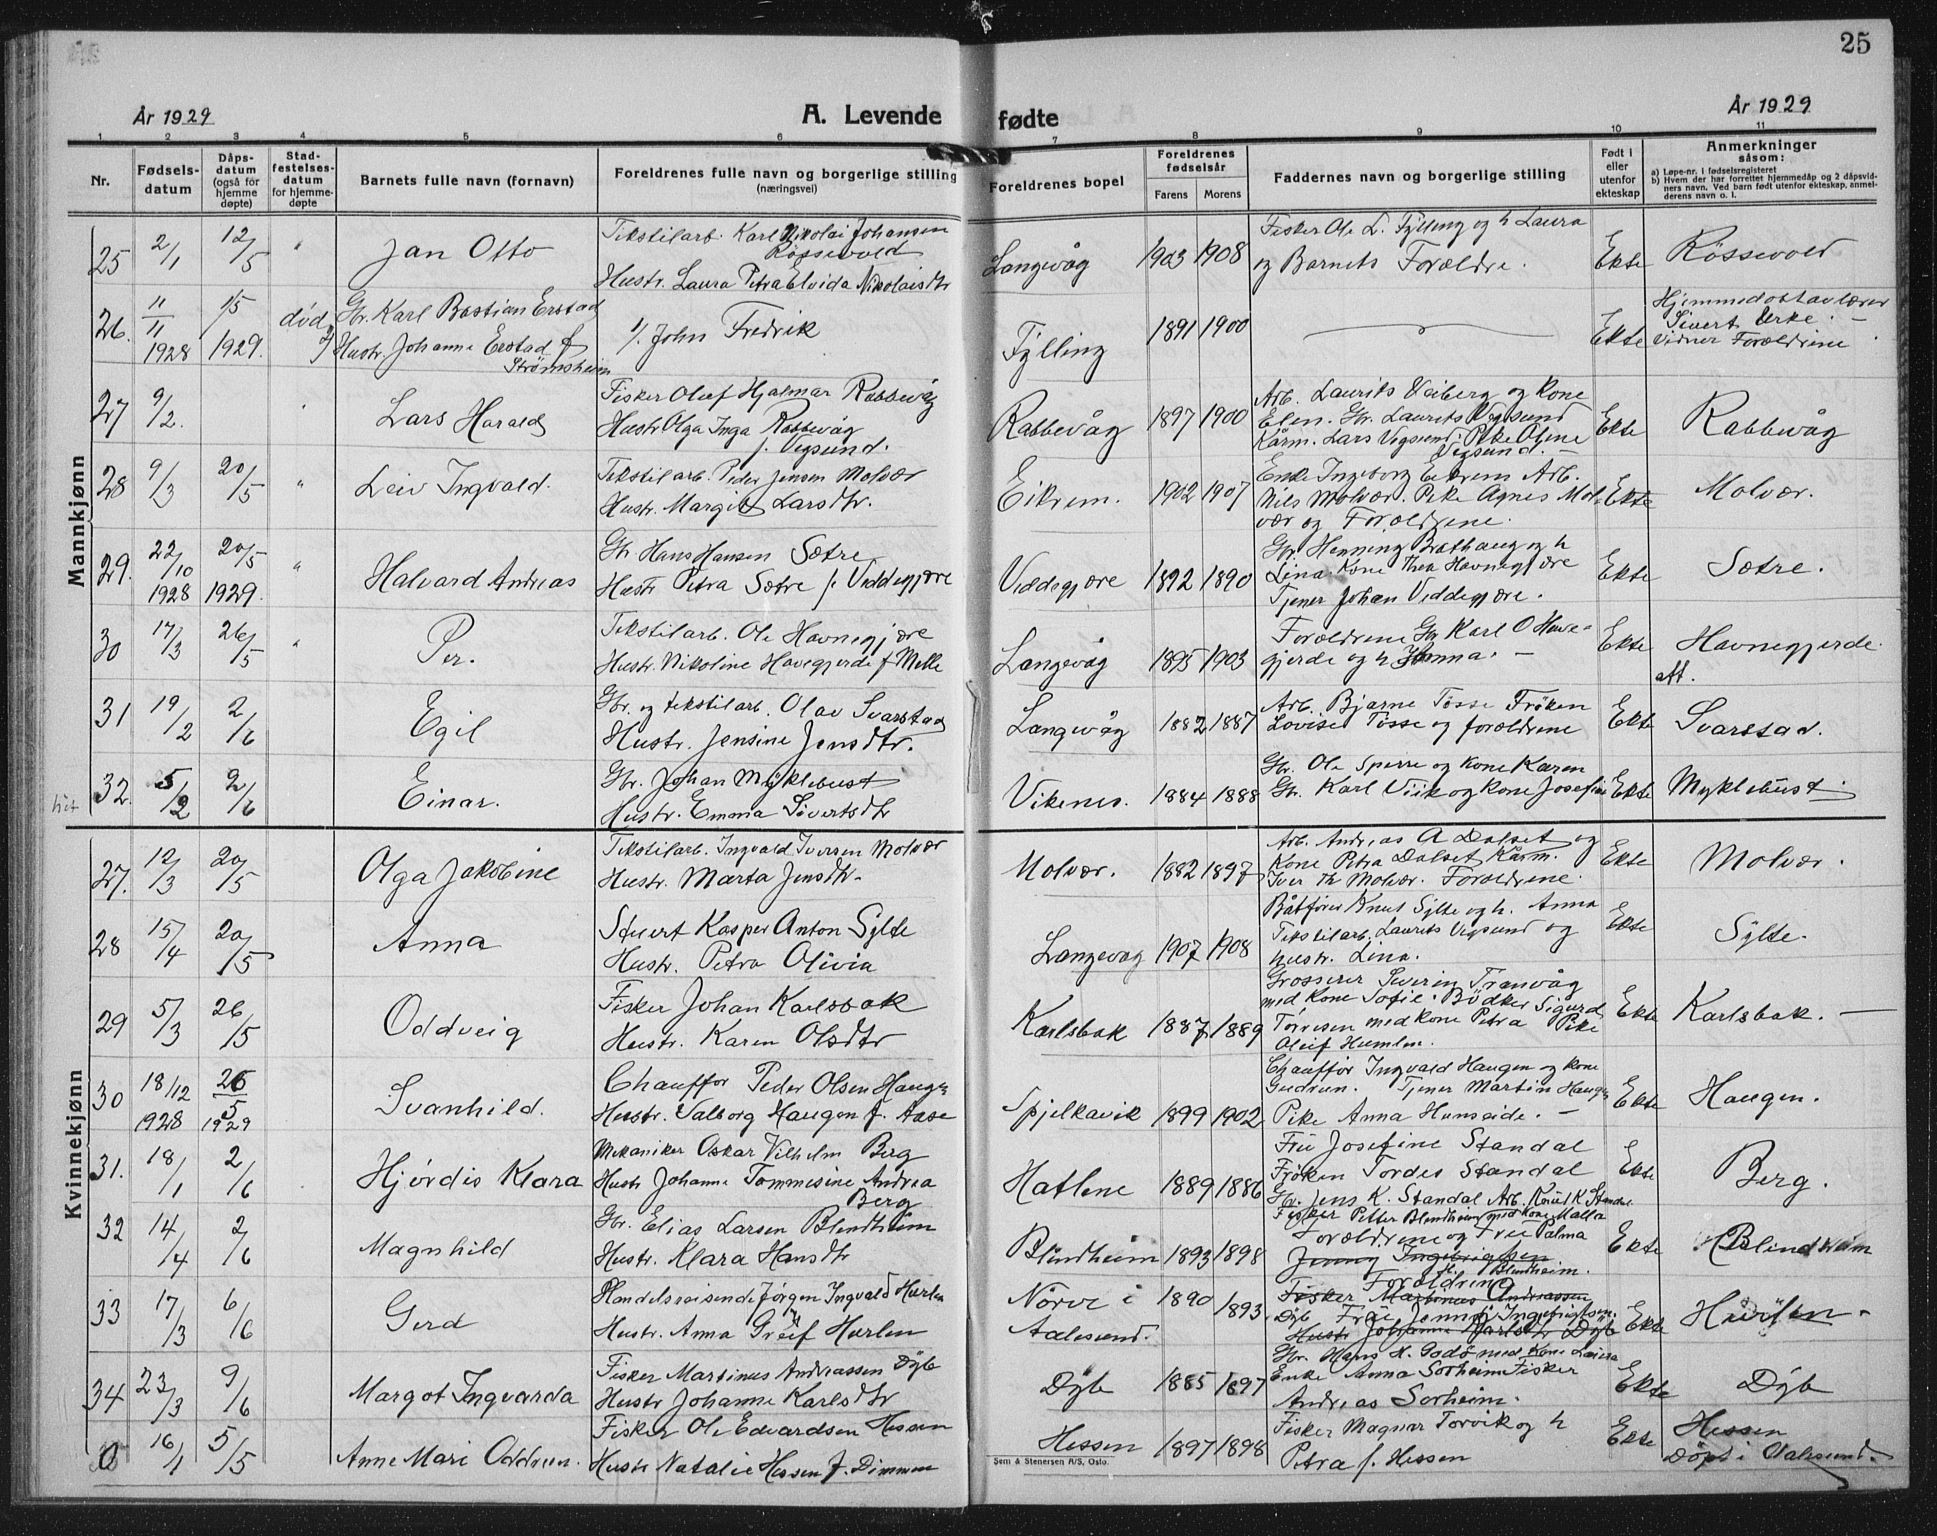 25
År 1929
A. Levende fødte
År 1929
1 2 3 4 5 6 7 8 9 10 11
Nr.
Fødsels-
datum
Dåps-
datum
(også för
hjemme
døpte)
Stad-
festelses-
datum
for hjemme-
døpte
Barnets fulle navn (fornavn)
Foreldrenes fulle navn og borgerlige stilling
(næringsvei)
Foreldrenes bopel
Foreldrenes
fødselsår
Farens Morens
Faddernes navn og borgerlige stilling
Født i
eller
utenfor
ekteskap
Anmerkninger
såsom:
a) Løpe-nr. i fødselsregisteret
b) Hvem der har forrettet hjemmedåp og 2 dåpsvid-
ners navn. Ved barn født utenfor ekteskap, anmel-
derens navn o. l.
Mannkjønn
25 2/1 12/5 " Jan Otto
Tekstilarb. Karl Nikolai Johansen
Røssevold
Hustr. Laura Petra Elvida Nikolaisdtr
Langevåg 1903 1908
Fisker Ole L. Fylling og h Laura
og Barnets Forældre.
Ekte Røssevold
26. 11/11 1928 1/5 1929. død
Gbr. Karl Bastian Erstad
Hustr. Johanne Erstad f
Strømsheim
1/. John Fredrik
Fylling 1891 1900
Ekte
Hjemmedøbt av lærer
Sivert Urke. —
Vidner Forældrene
27 9/2. Lars Harald
Fisker Oluf Hjalmar Rabbevåg
Hustr Olga Inga Rabbevåg
f. Vegsund.
Rabbevåg 1897 1900
Arb. Laurits Veiberg og Kone
Elen. Gbr. Laurits Vegsund
Kårm. Lars Vegsund. Pike Oline
Vegsund. —
Ekte Rabbevåg
28 9/3 20/5 " Leiv Ingvald.
Tekstilarb. Peder Jensen Molvær
Hustr. Margit Larsdtr.
Eikrem. 1902 1907
Enke Ingeborg Eikrem Arb.
Nils Molvær. Pike Agnes Mol-
vær og Forældrene.
Ekte Molvær.
29. 22/10 1928 20/5 1929. " Halvard Andreas
Gbr. Hans Hansen Sætre
Hustr Petra Sætre f. Veddegjære
Veddegjære 1892 1890
Gbr. Henning Brathaug og h
Lina Kone Thea Havnegjære
Tjener Johan Veddegjære.
Ekte Sætre.
30 17/3 26/5 " Per.
Tekstilarb. Ole Havnegjære
Hustr. Nikoline Havegjerde f Melle
Langevåg 1895 1903
Forældrene Gbr Karl O Have-
gjerde og h Hanna. —
Ekte Havnegjerde.
att.
31 19/2 2/6 Egil
Gbr. og tekstilarb. Olav Svarstad
Hustr. Jensine Jensdtr.
Langevåg 1882 1887
Arb. Bjarne Tosse Frøken
Lovise Tosse og forældrene
Ekte Svarstad.
32. 5/2 2/6 Einar.
Gbr. Johan Myklebust
Hustr. Emma Sivertsdtr
Vikenes. 1884 1888
Gbr. Ole Sperre og Kone Karen
Gbr. Karl Viik og Kone Josefine
Ekte Myklebust
Kvinnekjønn
27. 12/3 20/5 Olga Jakobine
Tekstilarb. Ingvald Iversen Molvær
Hustr. Marta Jensdtr.
Molvær. 1882 1897
Arb. Andreas A Dalset og
Kone Petra Dalset Kårm.
Iver Th Molvær. Forældrene.
Ekte Molvær.
28 15/4 20/5 Anna
Stuert Kasper Anton Sylte
Hustr. Petra Olivia
Langevåg 1907 1908
Båtfører Knut Sylte og h. Anna
Tekstilarb. Laurits Vegsund og
Hustr. Lina.
Ekte Sylte.
29 5/3 26/5 Oddveig
Fisker Johan Karlsbak
Hustr. Karen Olsdtr
Karlsbak 1887 1889
Grosserer Severin Tranvåg
med Kone Sofie. Bödker Sigurd
Torvesen med Kone Petra Pike
Oleif Humlen.
Ekte Karlsbak. —
30 18/12 1928 26/5 1929 Svanhild.
Chauffør Peder Olsen Haugen
Hustr. Valborg Haugen f. Aase
Spjelkavik 1899 1902
Chauffør Ingvald Haugen og Kone
Gudrun. Tjener Martin Haugen
Pike Anna Humseide. —
Ekte Haugen.
31. 18/1 2/6 Hjördis Klara
Mekaniker Oskar Vilhelm Berg
Hustr Johanne Tommesine Andrea
Berg
Hatlene 1889 1886
Fru Josefine Standal
Frøken Tordes Standal
Gbr. Jens K. Standal Arb. Knut K Standal
Ekte Berg.
32 14/4 2/6 Magnhild
Gbr. Elias Larsen Blindheim
Hustr. Klara Hansdtr
Blindheim 1893 1898
Fisker Petter Blindheim med Kone Malla
Forældrene og Fru Palma
Jenny Ingebrigtsen
Blindheim.
Ekte Blindheim
33 17/3 6/6 Gerd
Handelsreisende Jörgen Ingvald Hurlen
Hustr. Anna Greif Hurlen
Nörve i
Aalesund. 1890 1893
Forældrene
Fisker Martinus Andreassen
Dyb Frøk Jenny Ingebrigtsen.
Hustr Johanne Karlsdtr Dyb
Ekte Hurlen.
34 23/3 9/6 Margot Ingvarda
Fisker Martinus Andreassen Dyb
Hustr Johanne Karlsdtr
Dyb 1885 1897
Gbr. Hans H. Godø med Kone Laura
Enke Anna Sorheim Fisker
Andreas Sorheim.
Ekte Dyb
0 16/1 5/5 Anne Mari Oddrun.
Fisker Ole Edvardsen Hessen
Hustr Natalie Hessen f. Dimmen
Hessen 1897 1898
Fisker Magnar Torvik og h
Petra f. Hessen
Ekte Hessen
Døpt i Aalesund.
Sem & Stenersen A/S, Oslo.